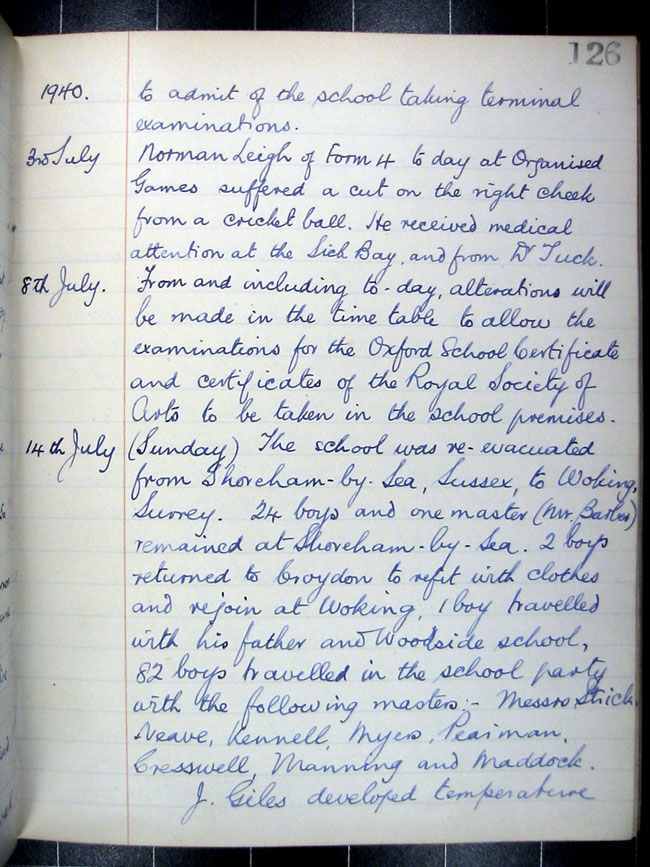 126
1940. to admit of the school taking terminal
examinations.
3rd July Norman Leigh of Form 4 to day at Organised
Games suffered a cut on the right cheek
from a cricket ball. He received medical
attention at the Sick Bay, and from Dr Tuck.
8th July. From and including to-day, alterations will
be made in the time table to allow the
examinations for the Oxford School Certificate
and certificates of the Royal Society of
Arts to be taken in the school premises.
14th July (Sunday) The school was re-evacuated
from Shoreham-by-Sea, Sussex, to Woking,
Surrey. 24 boys and one master (Mr. Barber)
remained at Shoreham-by-Sea. 2 boys
returned to Croydon to refit with clothes
and rejoin at Woking, 1 boy travelled
with his father and Woodside school,
82 boys travelled in the school party
with the following masters:- Messrs
Neave, Kennell, Myers, Pearman,
Cresswell, Manning and Maddock.
J. Giles developed temperature